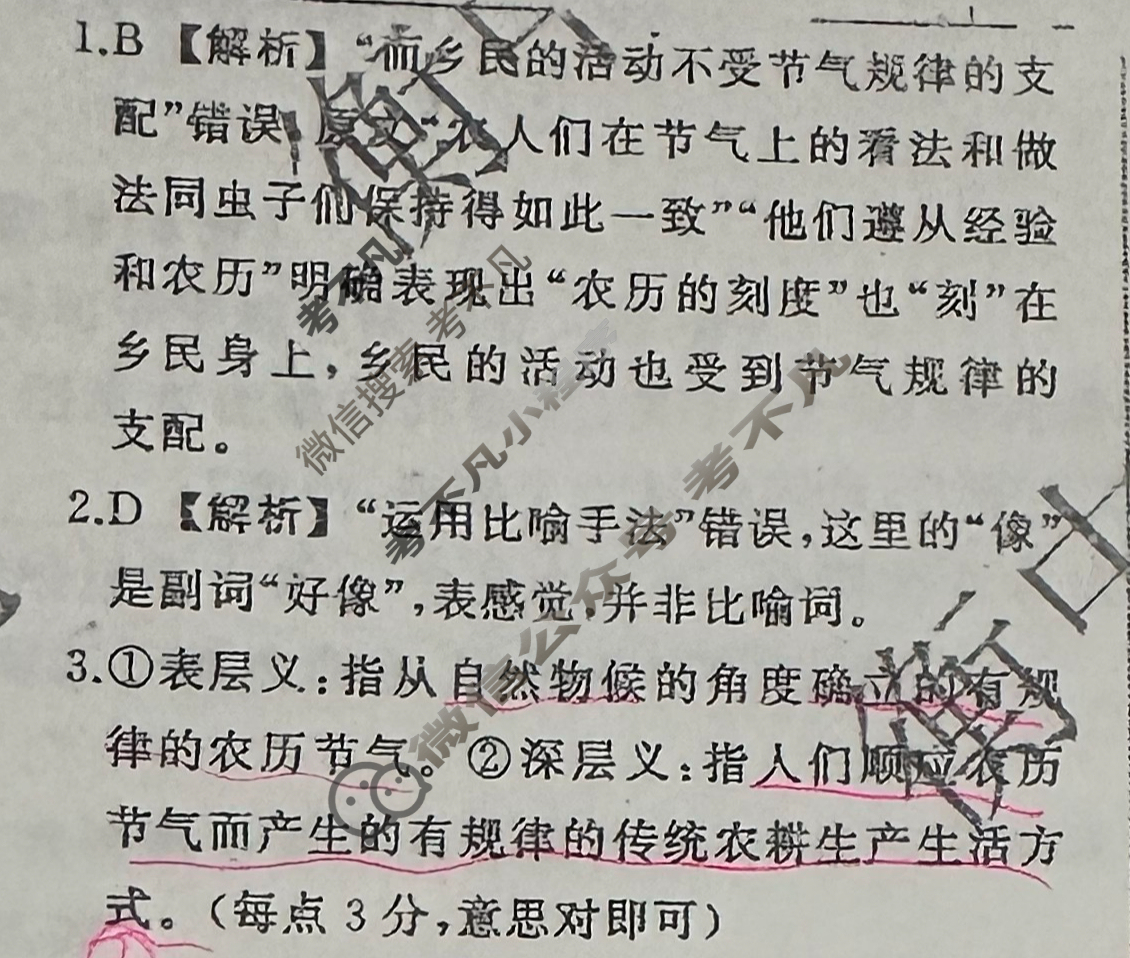 1.B 【解析】“而乡民的活动不受节气规律的支
配”错误，原文“农人们在节气上的看法和做
法同虫子们保持得如此一致”“他们遵从经验
和农历”明确表现出“农历的刻度”也“刻”在
乡民身上，乡民的活动也受到节气规律的
支配。
2.D 【解析】“运用比喻手法”错误，这里的“像”
是副词“好像”，表感觉，并非比喻词。
3.①表层义：指从自然物候的角度确立的有规
律的农历节气。②深层义：指人们顺应农历
节气而产生的有规律的传统农耕生产生活方
式。（每点3分，意思对即可）
考不凡
微信搜索 考不凡
考不凡小程
微信公众号 考不凡